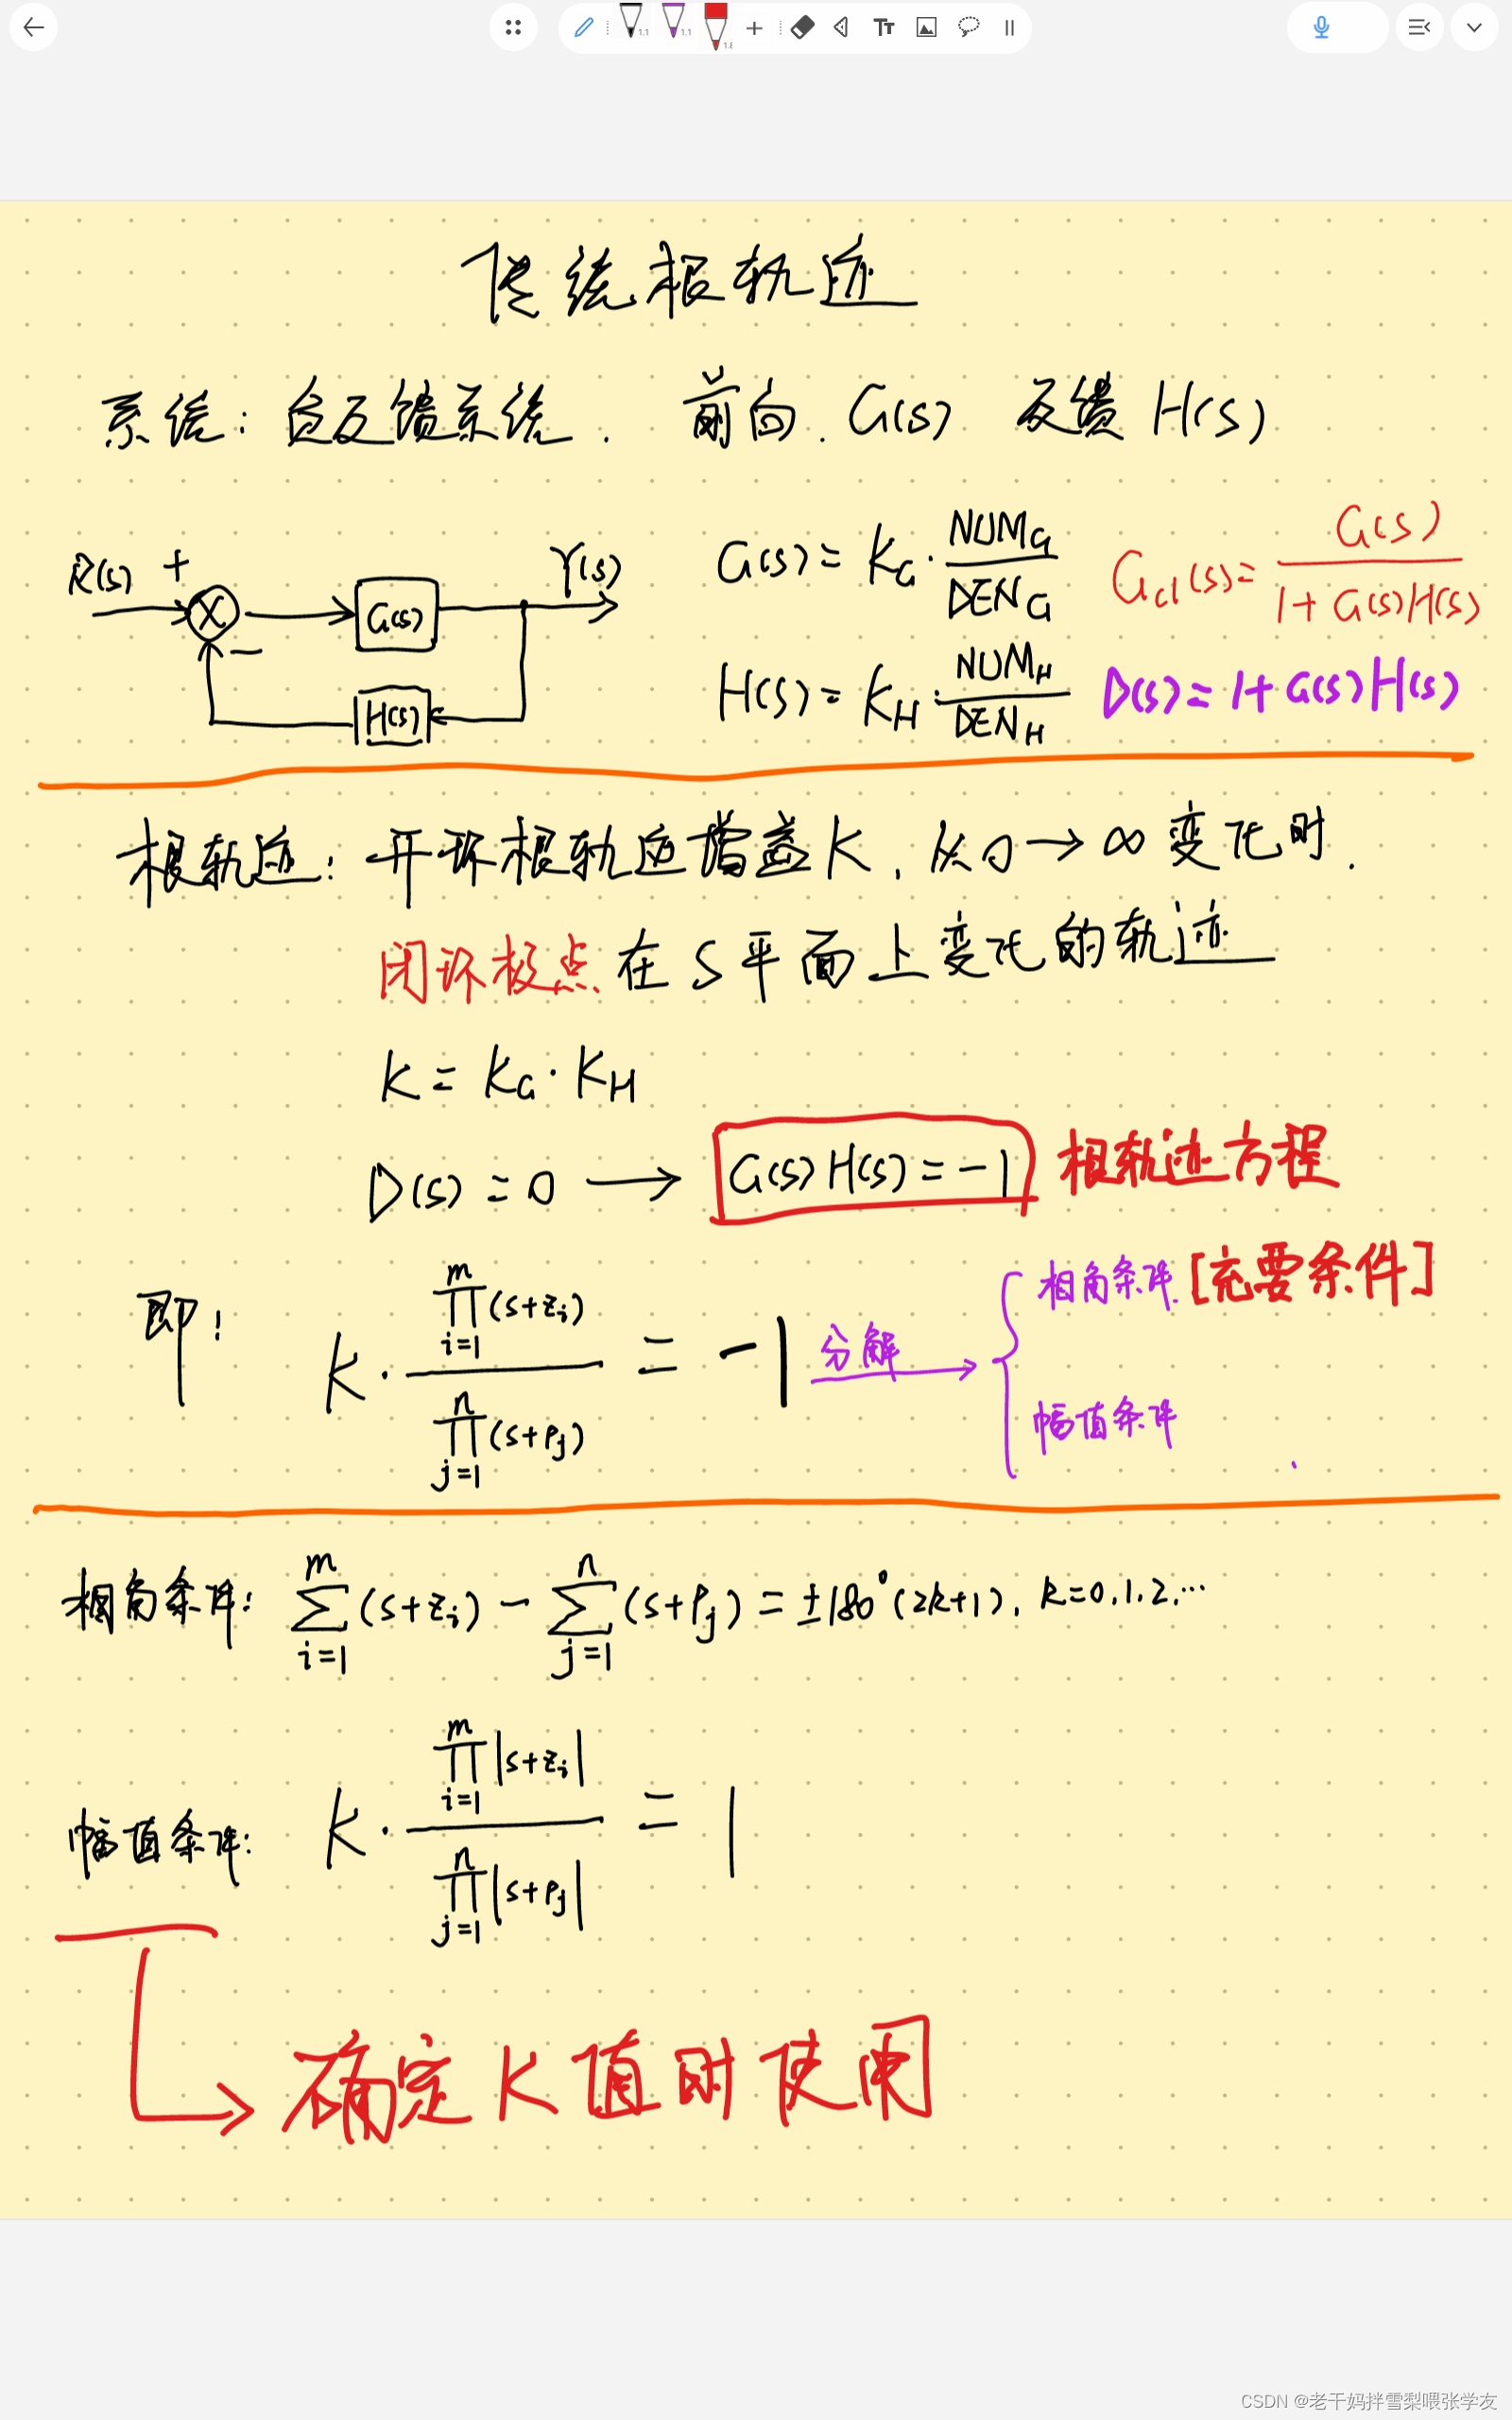 传统根轨迹
系统: 负反馈系统. 前向. G(s) 反馈 H(s)
R(s) + Y(s)
G(s)
−
H(s)
G(s) = K_G · NUM_G / DEN_G
G_cl(s) = G(s) / 1 + G(s)H(s)
H(s) = K_H · NUM_H / DEN_H
D(s) = 1 + G(s)H(s)
根轨迹: 开环根轨迹增益K, 从0→∞变化时.
闭环极点在S平面上变化的轨迹
K = K_G · K_H
D(s) = 0 → G(s)H(s) = −1 根轨迹方程
即: K · ∏_{i=1}^{m}(s+z_i) / ∏_{j=1}^{n}(s+p_j) = −1 分解
相角条件 [充要条件]
幅值条件
相角条件: ∑_{i=1}^{m}(s+z_i) − ∑_{j=1}^{n}(s+p_j) = ±180°(2k+1), k=0,1,2,…
幅值条件: K · ∏_{i=1}^{m}|s+z_i| / ∏_{j=1}^{n}|s+p_j| = 1
确定K值时使用
CSDN @老干妈拌雪梨喂张学友